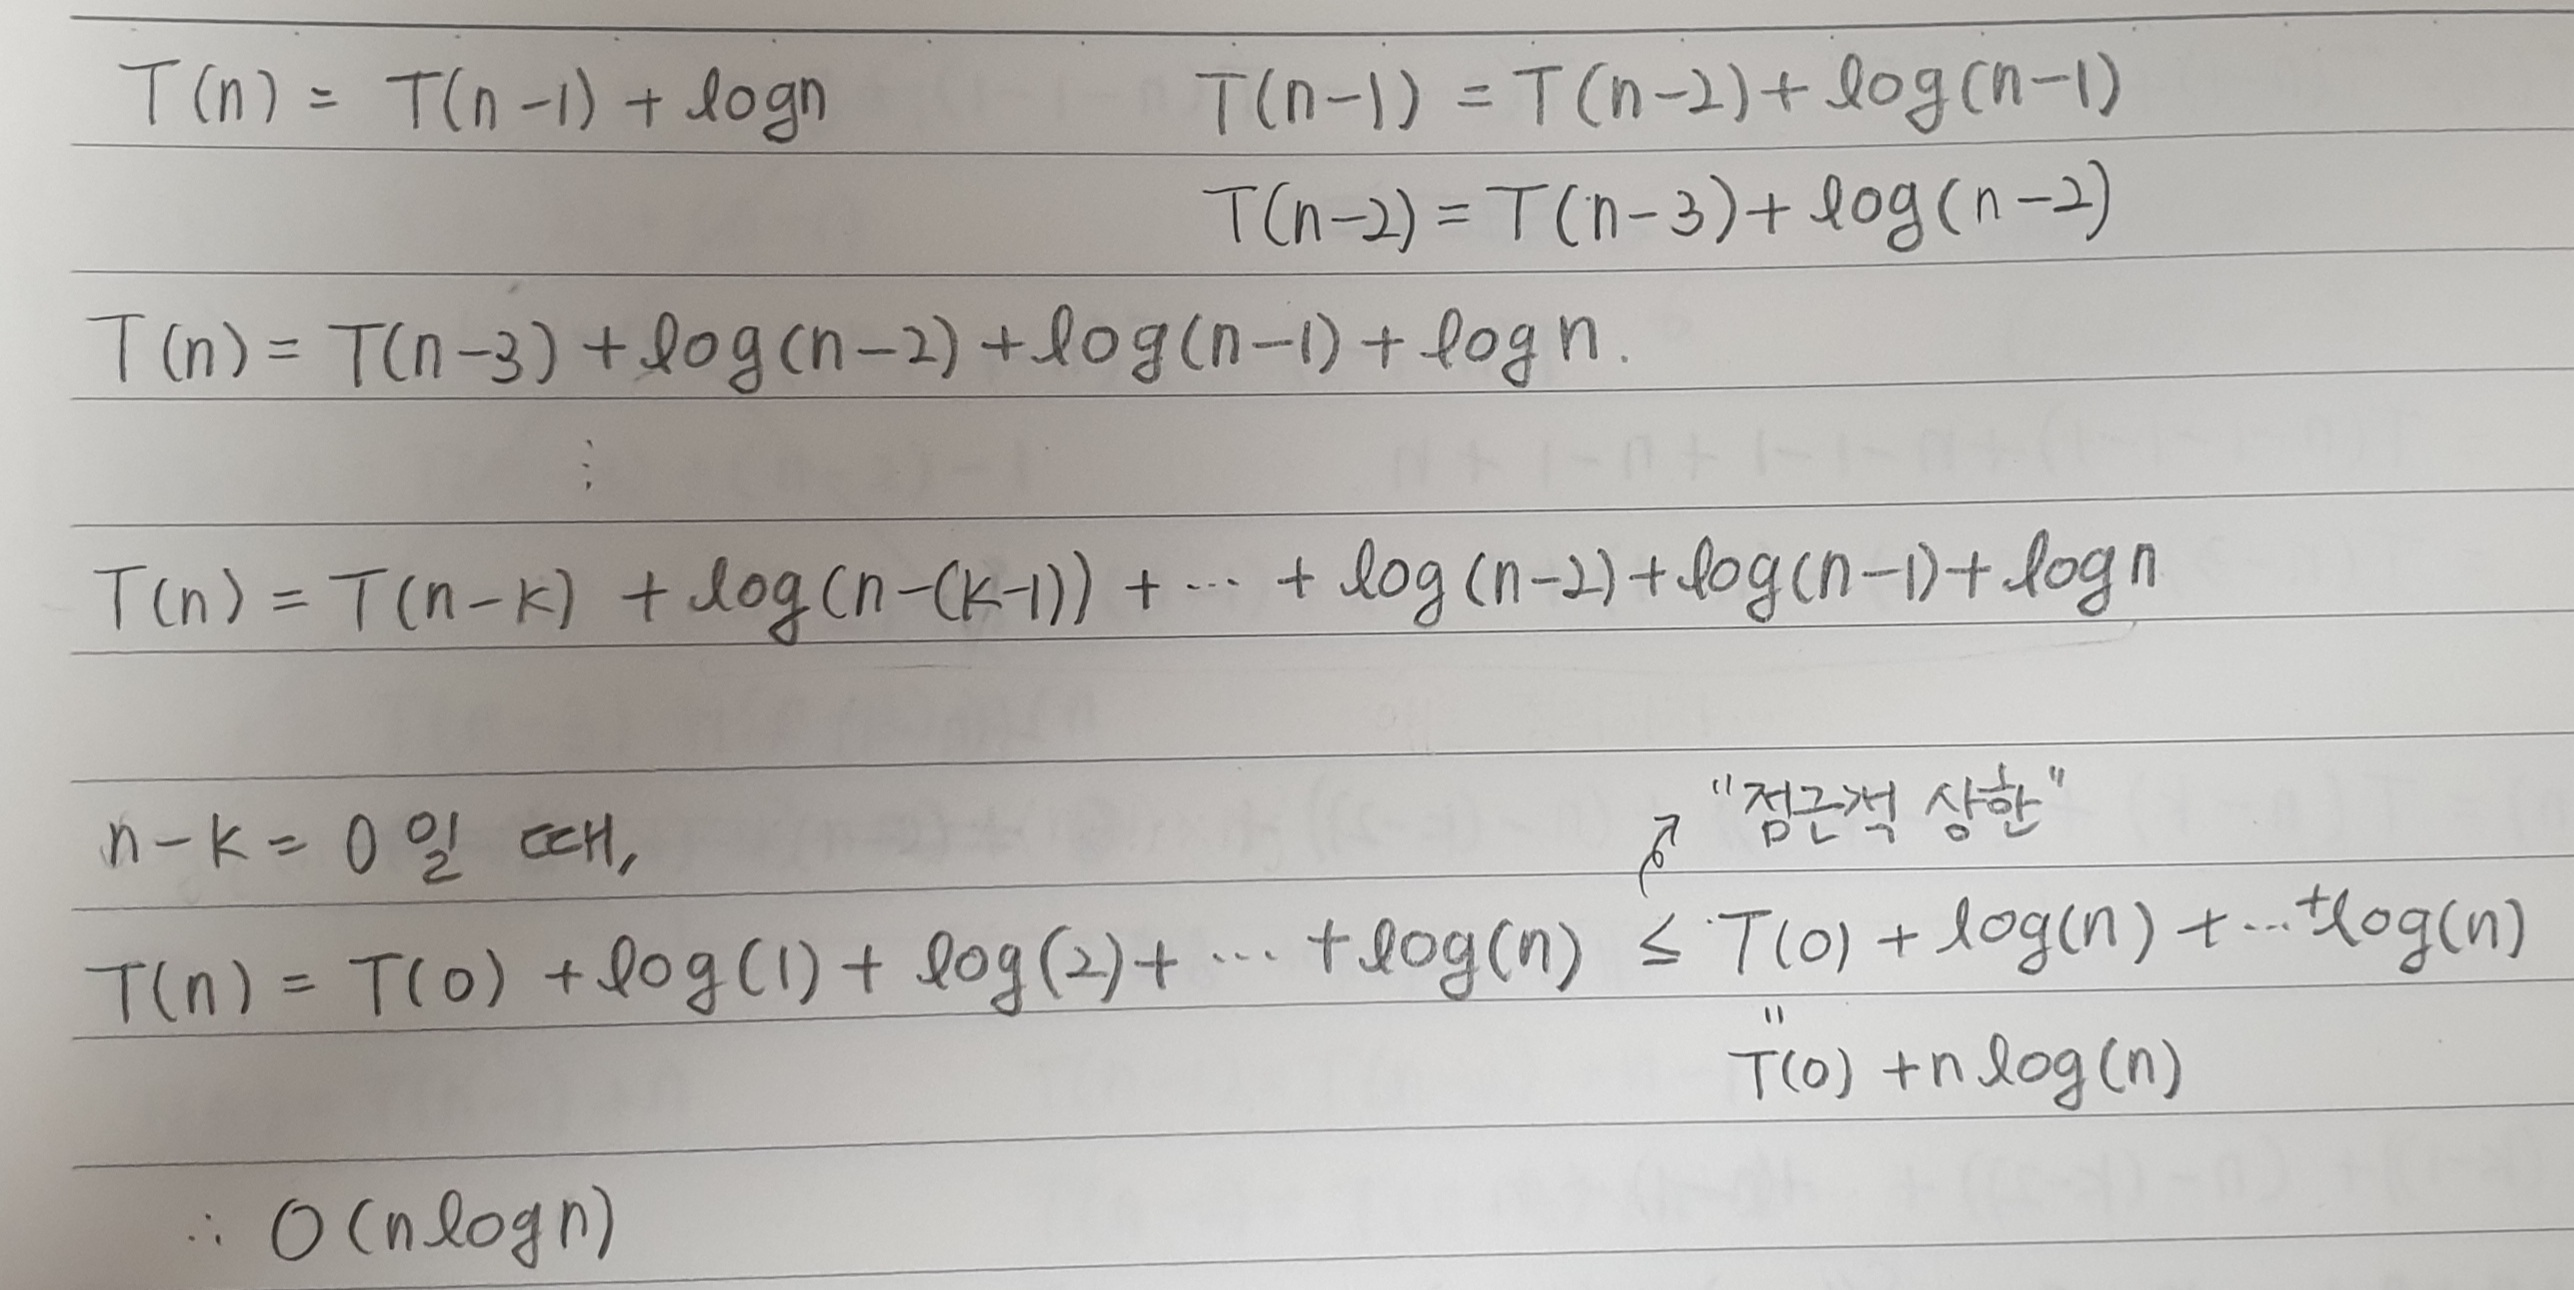 T(n) = T(n-1) + logn T(n-1) = T(n-2) + log(n-1)
T(n-2) = T(n-3) + log(n-2)
T(n) = T(n-3) + log(n-2) + log(n-1) + log n.
⋮
T(n) = T(n-k) + log(n-(k-1)) + ··· + log(n-2) + log(n-1) + log n
n-k = 0 일 때,
"점근적 상한"
T(n) = T(0) + log(1) + log(2) + ··· + log(n) ≤ T(0) + log(n) + ··· + log(n)
"
T(0) + n log(n)
∴ O(n log n)